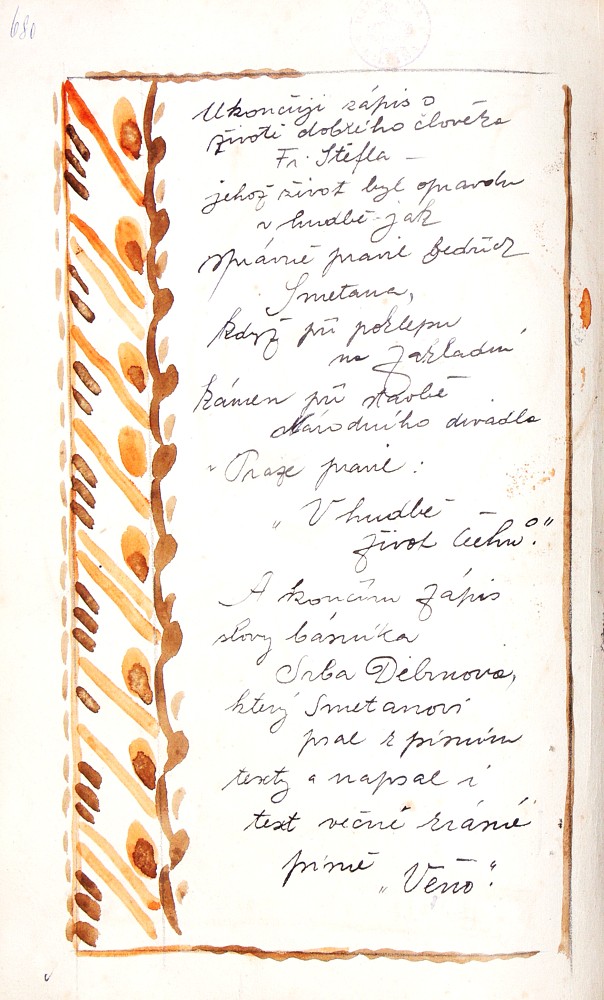 680
Ukončuji zápis o
životě dobrého člověka
Fr. Štefla –
jehož život byl opravdu
v hudbě jak
správně pravil Bedřich
Smetana,
když při poklepu
na základní
kámen při stavbě
Národního divadla
v Praze pravil:
„V hudbě
život Čechů."
A končím zápis
slovy básníka
Srba Debrnova,
který Smetanovi
psal k písním
texty a napsal i
text věčně krásné
písně „Věno".